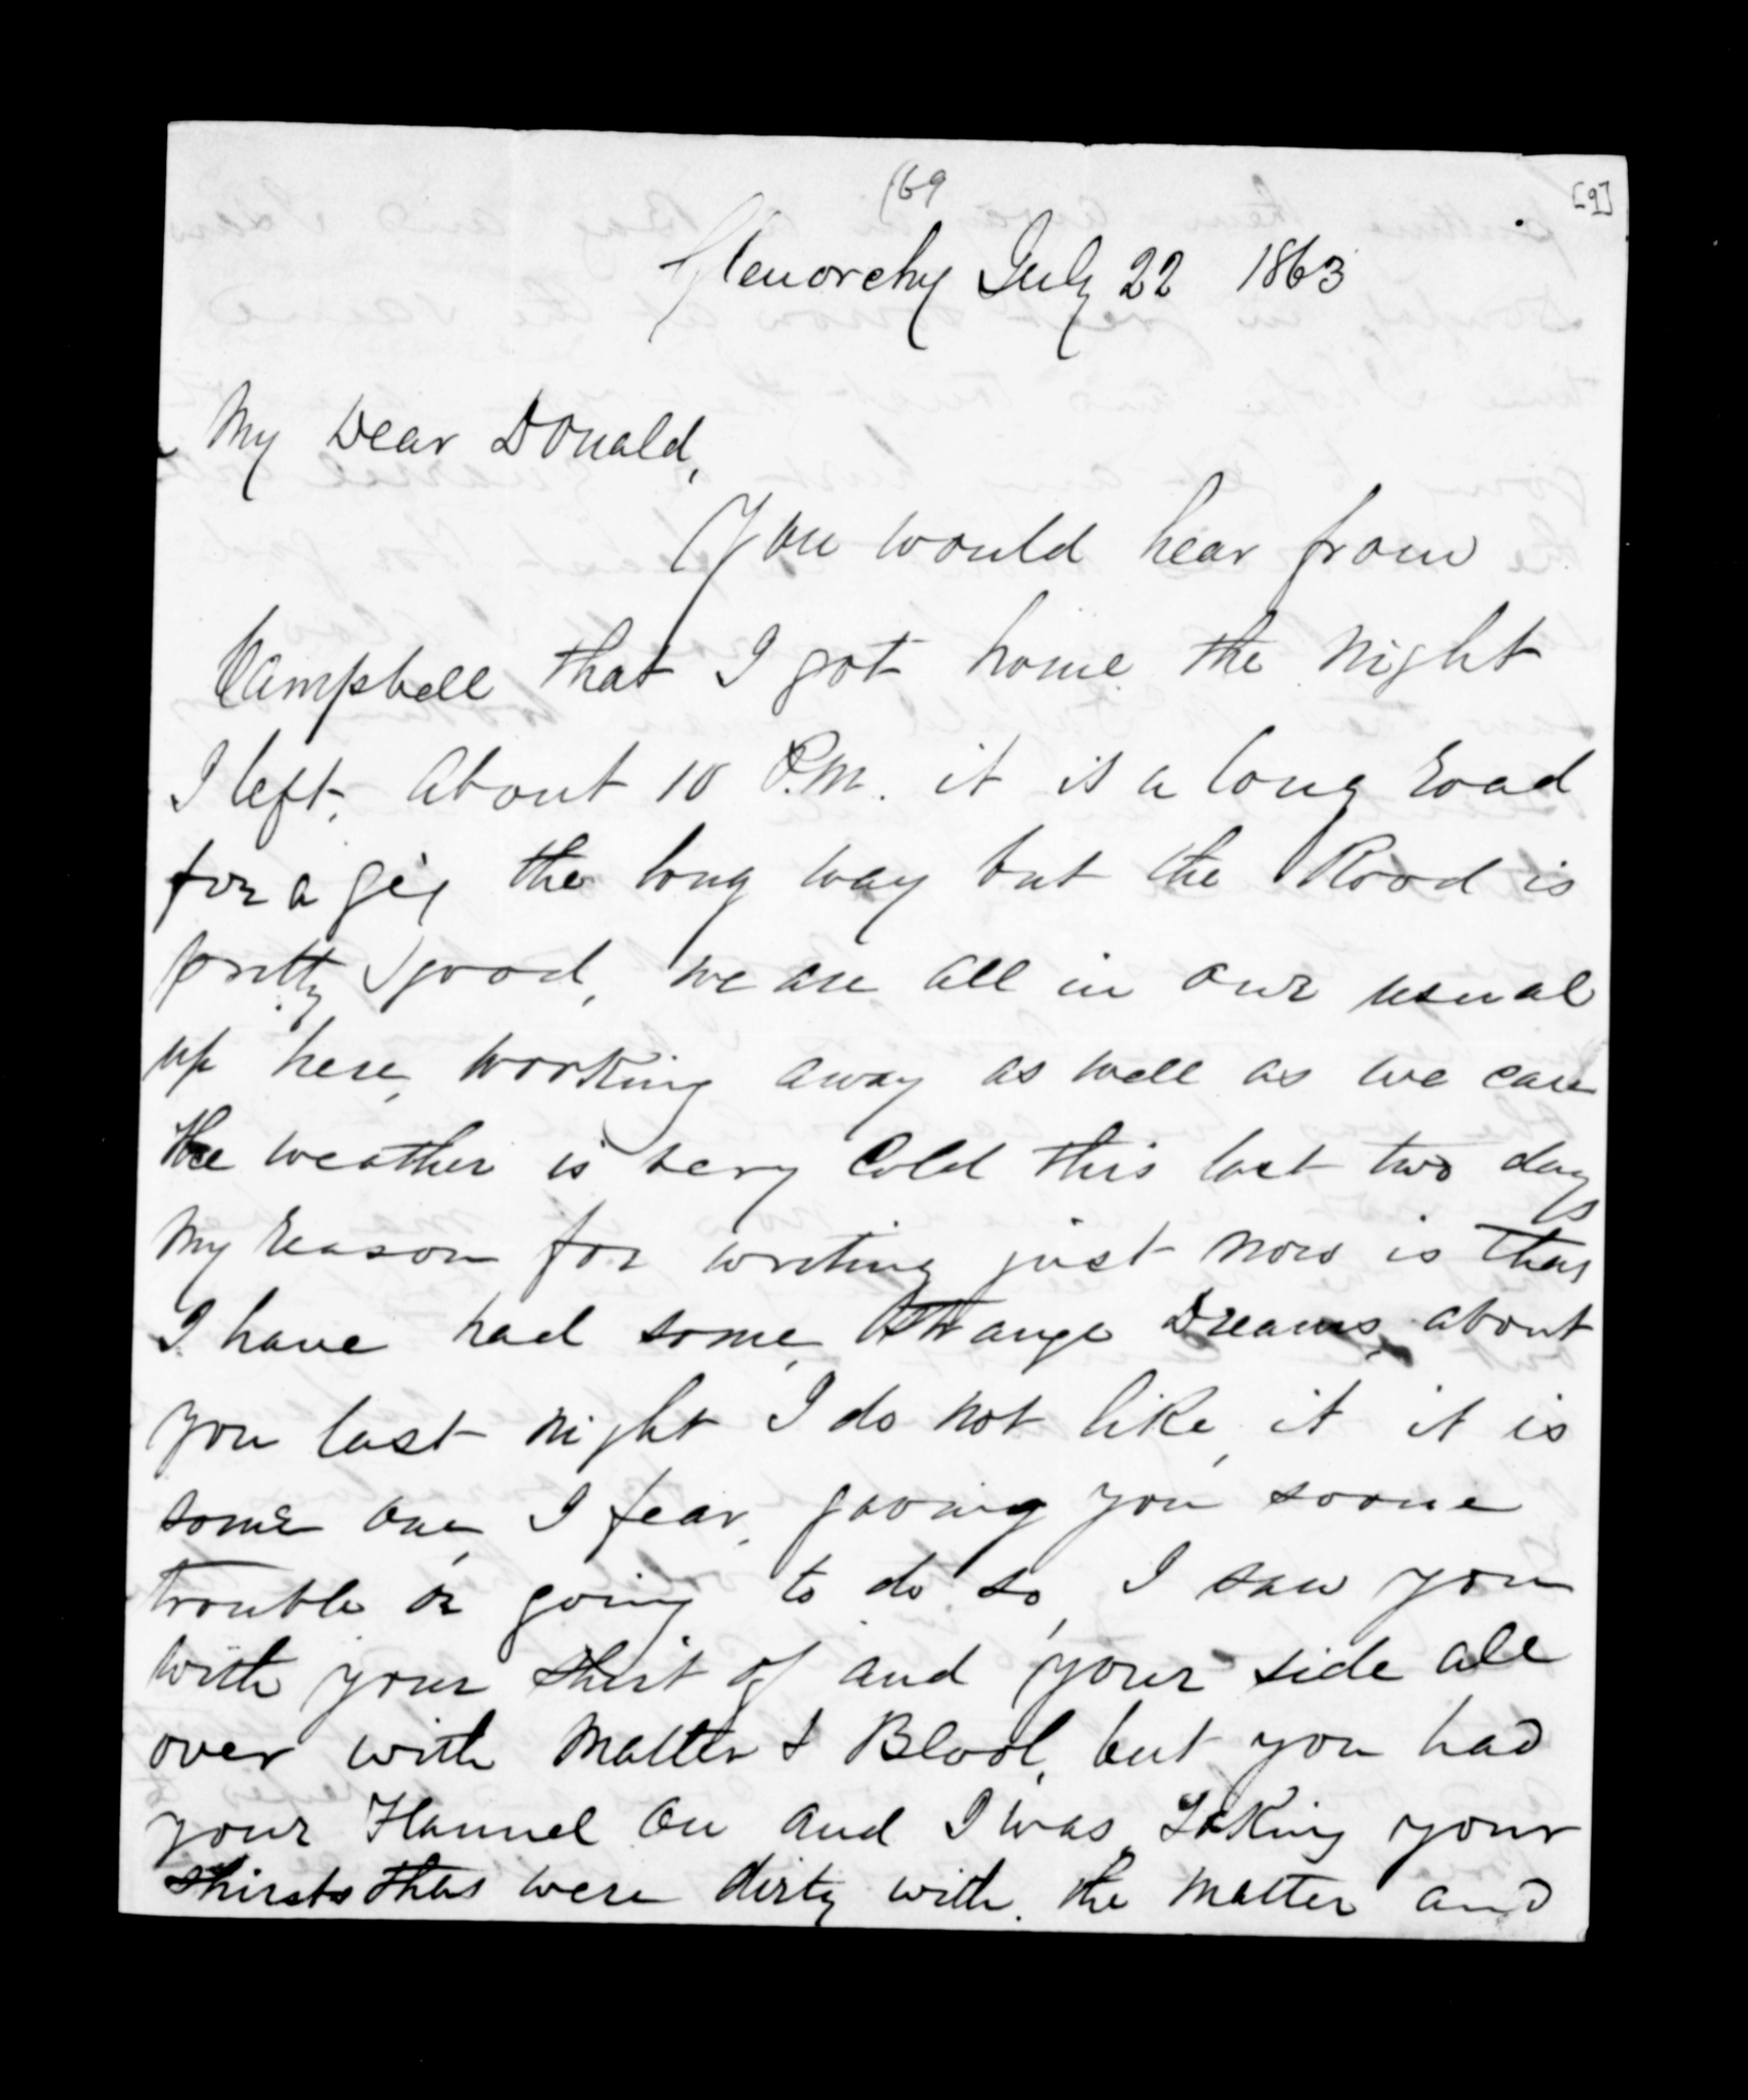 (69
[9]
Glenorchy July 22 1863
My Dear Donald,
You would hear from
Campbell that I got home the Night
I left, About 10 P.M. it is a long Road
for a Gig the long way but the Road is
pretty good, we are all in our usual
up here, working away as well as we can
the weather is very Cold this last two days
My Reason for writing just now is that
I have had some, Strange Dreams, about
you last Night I do not like, it it is
some one, I fear, giving you some
trouble or going to do so, I saw you
with your shirt of and your side all
over with Matter & Blood, but you had
your Flannel on and I was, Taking your
shirts that were dirty with. the Matter and